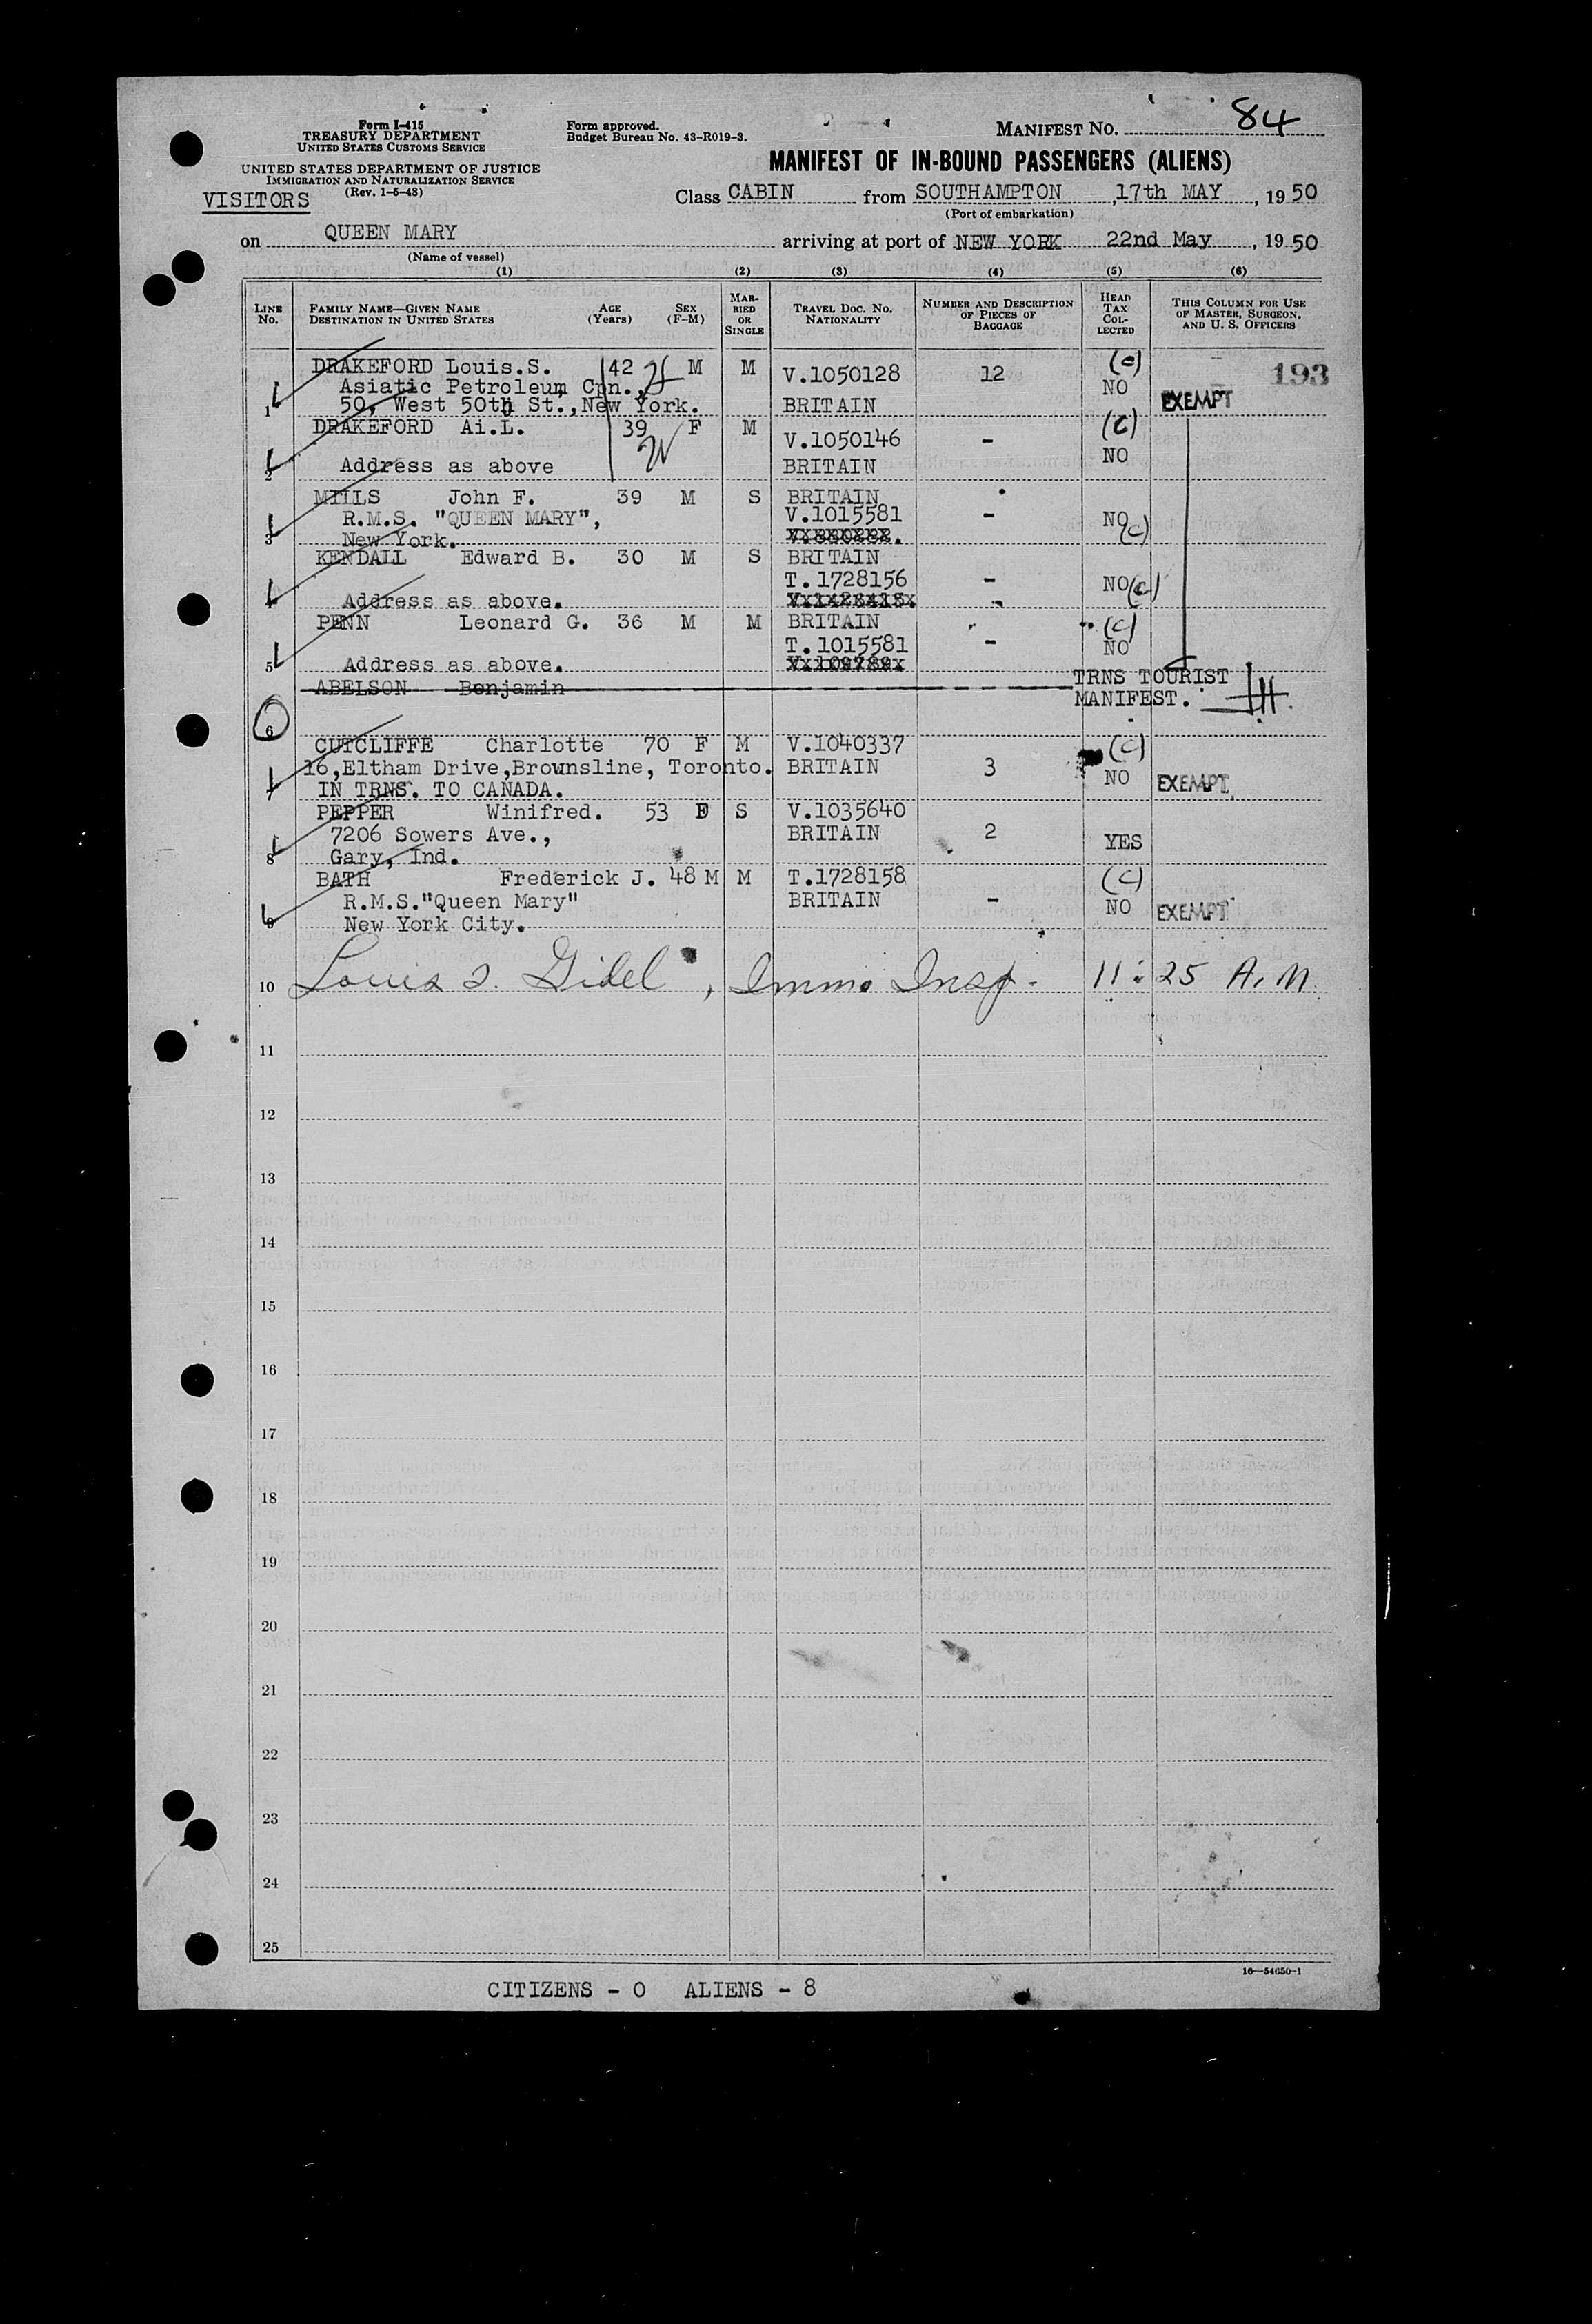 Form I-415
TREASURY DEPARTMENT
UNITED STATES CUSTOMS SERVICE
UNITED STATES DEPARTMENT OF JUSTICE
IMMIGRATION AND NATURALIZATION SERVICE
(Rev. 1-5-48)
VISITORS
Form approved.
Budget Bureau No. 43-R019-3.
MANIFEST NO. 84
MANIFEST OF IN-BOUND PASSENGERS (ALIENS)
Class CABIN from SOUTHAMPTON, 17th MAY, 1950
(Port of embarkation)
on QUEEN MARY arriving at port of NEW YORK 22nd May, 1950
(Name of vessel)
(1) (2) (3) (4) (5) (6)
LINE No. FAMILY NAME—GIVEN NAME DESTINATION IN UNITED STATES AGE (Years) SEX (F-M) MARRIED OR SINGLE TRAVEL DOC. NO. NATIONALITY NUMBER AND DESCRIPTION OF PIECES OF BAGGAGE HEAD TAX COLLECTED THIS COLUMN FOR USE OF MASTER, SURGEON, AND U. S. OFFICERS
193
DRAKEFORD Louis.S. 42 M M V.1050128 12 (c)
Asiatic Petroleum Cpn., NO
1 50, West 50th St.,New York. BRITAIN EXEMPT
DRAKEFORD Ai.L. 39 F M V.1050146 - (c)
2 Address as above BRITAIN NO
MILLS John F. 39 M S BRITAIN
R.M.S. "QUEEN MARY", V.1015581 - NO (c)
3 New York.
KENDALL Edward B. 30 M S BRITAIN
T.1728156 - NO (c)
4 Address as above.
PENN Leonard G. 36 M M BRITAIN (c)
T.1015581 - NO
5 Address as above.
ABELSON Benjamin TRNS TOURIST
MANIFEST.
6
CUTCLIFFE Charlotte 70 F M V.1040337 (c)
16,Eltham Drive,Brownsline, Toronto. BRITAIN 3 NO
7 IN TRNS. TO CANADA. EXEMPT
PEPPER Winifred. 53 F S V.1035640
7206 Sowers Ave., BRITAIN 2 YES
8 Gary, Ind.
BATH Frederick J. 48 M M T.1728158 (c)
R.M.S."Queen Mary" BRITAIN - NO EXEMPT
9 New York City.
10 Louis S. Gidel, Imm. Insp. 11:25 A.M.
11
12
13
14
15
16
17
18
19
20
21
22
23
24
25
16—54650-1
CITIZENS - 0 ALIENS - 8